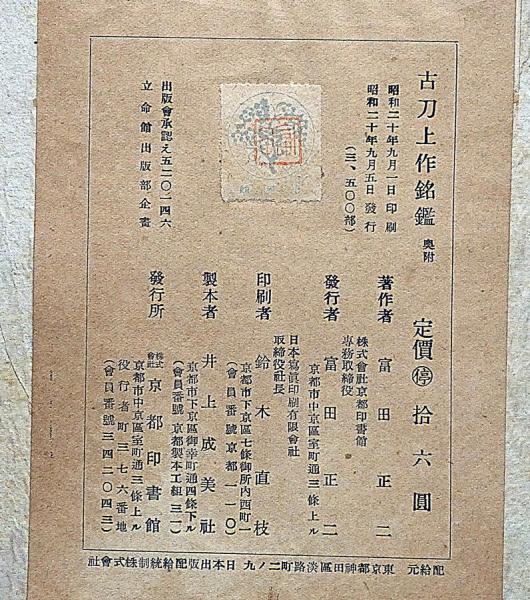 古刀上作銘鑑 奥附
定價 ㊡ 拾六圓
昭和二十年九月一日印刷
昭和二十年九月五日發行
(三、五〇〇部)
著作者 富田正二
株式會社京都印書館
專務取締役
發行者 富田正二
京都市中京區室町通三條上ル
日本寫眞印刷有限會社
取締役社長
印刷者 鈴木直枝
京都市下京區七條御所内西町一
(會員番號京都一一〇)
製本者 井上成美社
京都市下京區御幸町通四條下ル
(會員番號 京都製本工組 三一)
出版會承認え五二〇一四六
立命館出版部企畫
發行所 株式會社 京都印書館
京都市中京區室町通三條上ル
役行者町三七六番地
(會員番號三四二〇四三)
配給元 東京都神田區淡路町二ノ九 日本出版配給統制株式會社